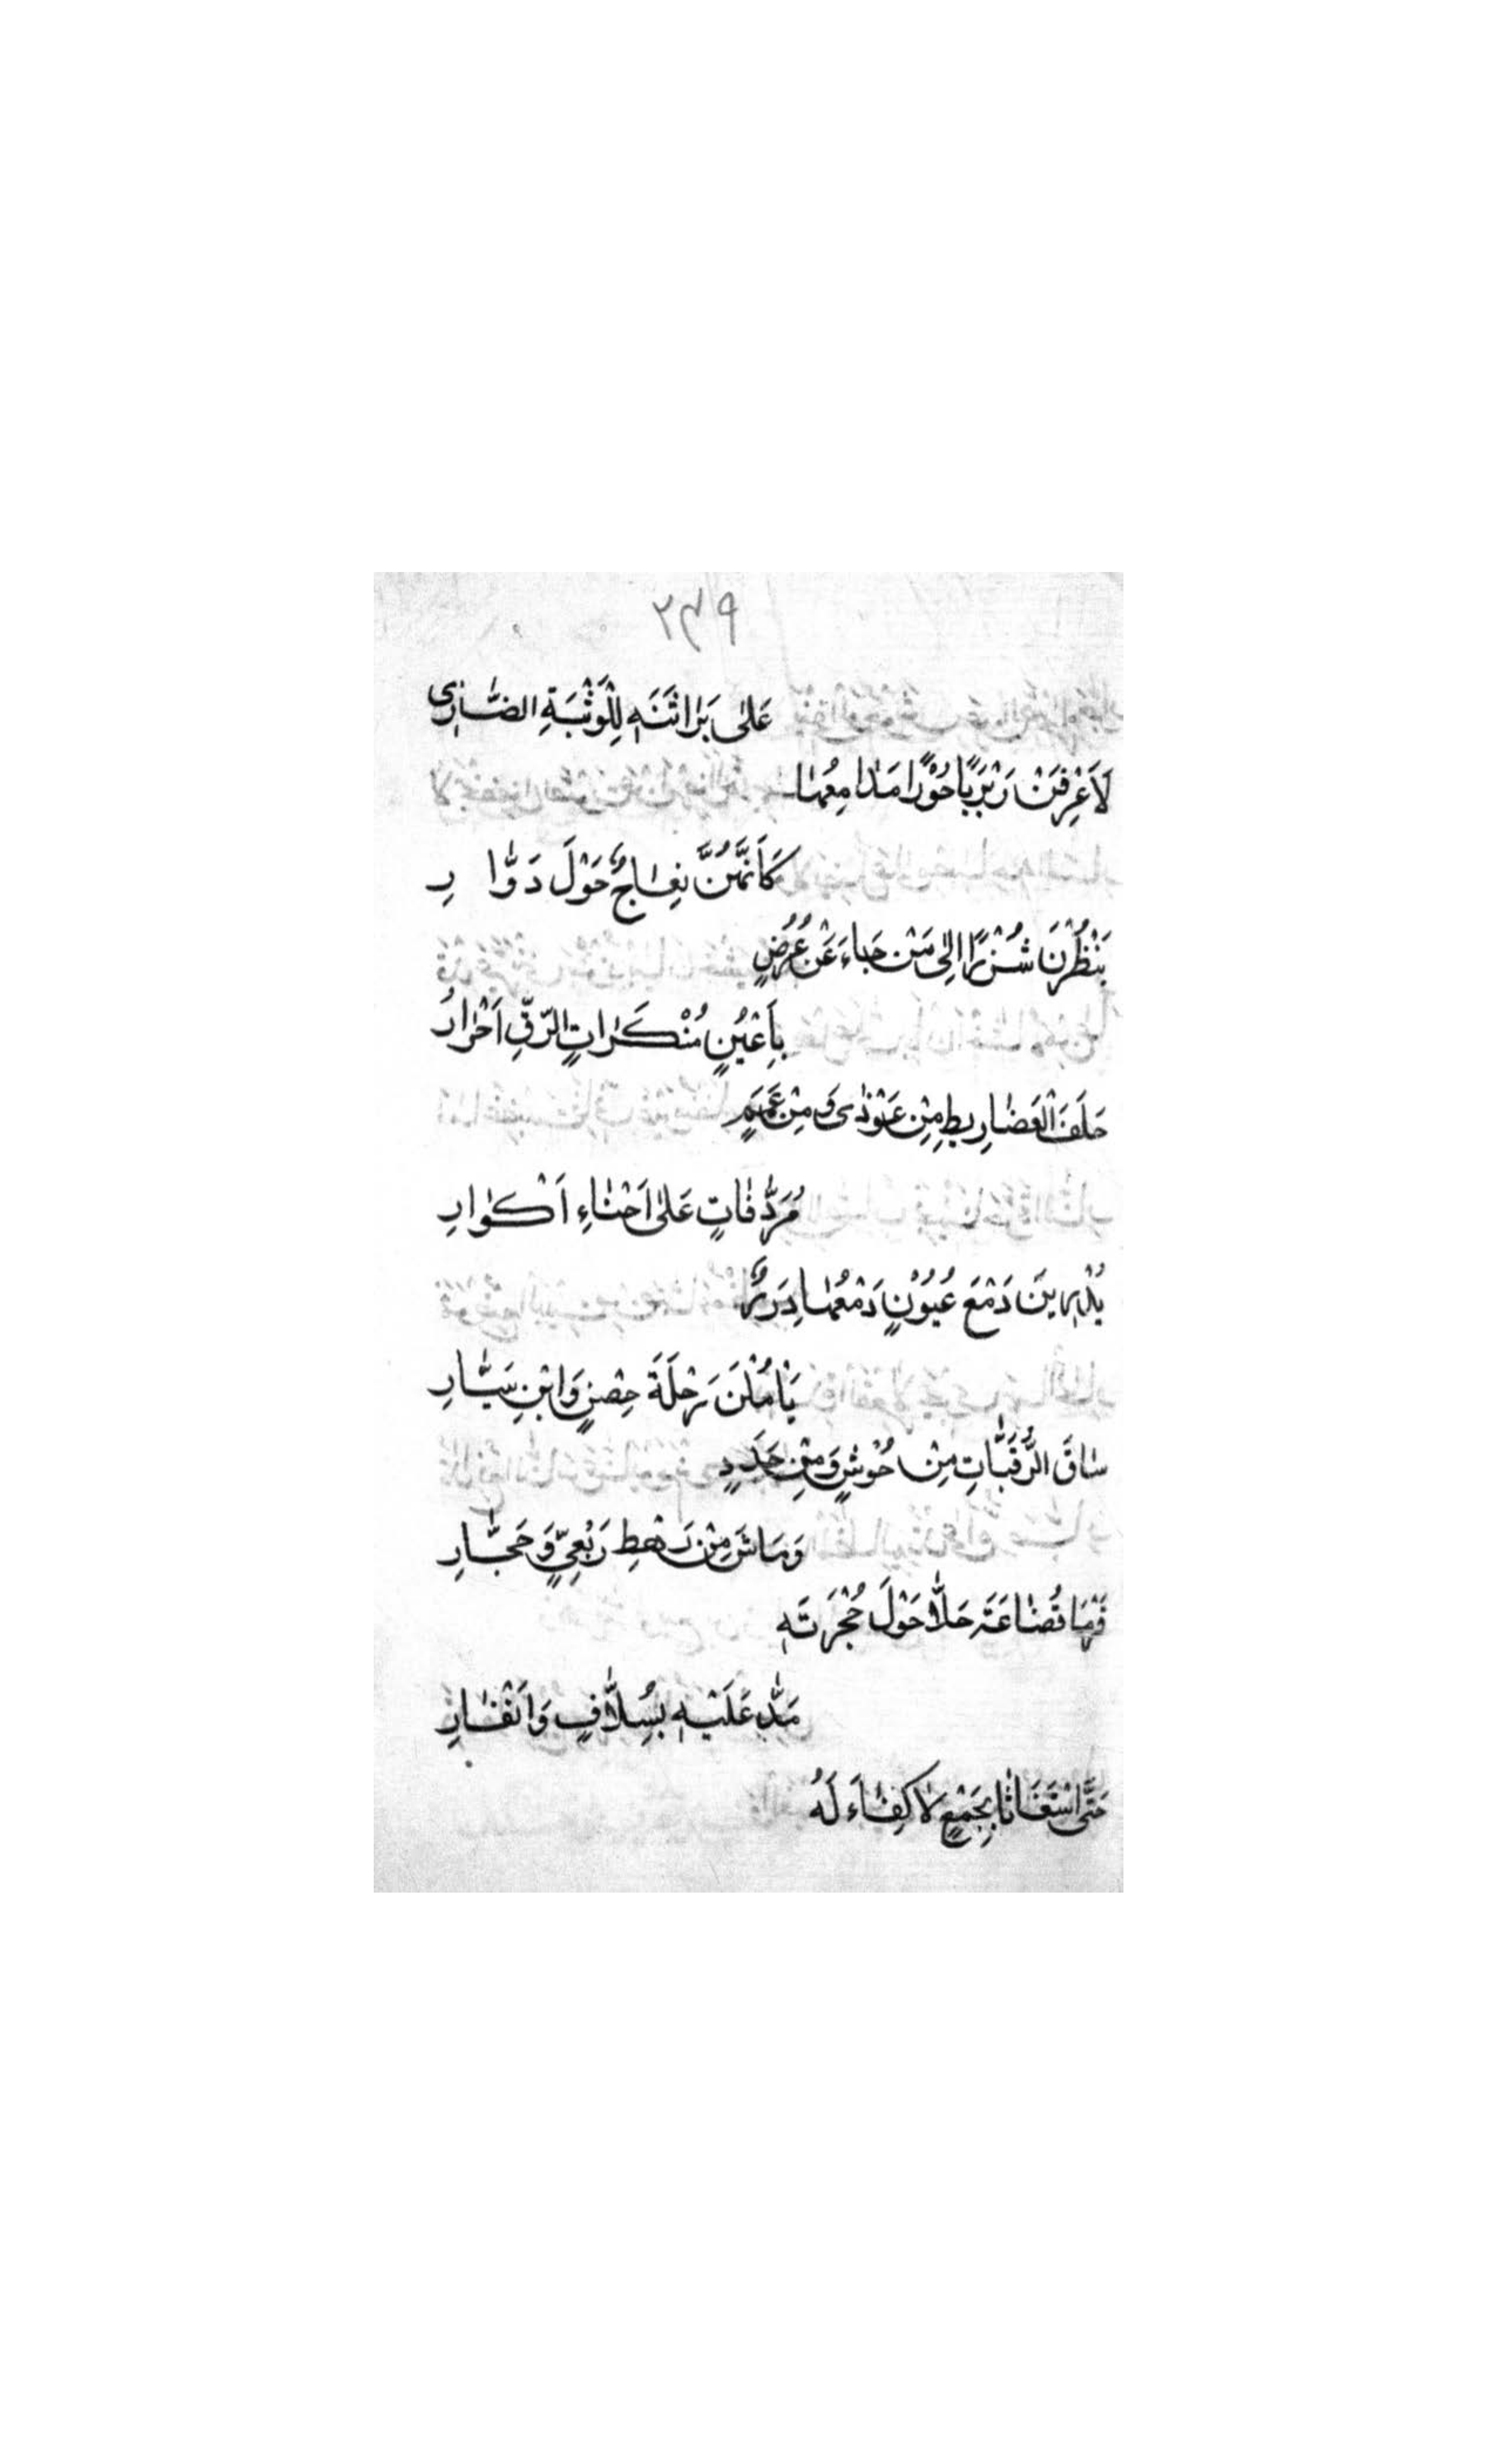 ٢٦٩
عَلٰى بَرٰاثَنَهِ لِلْوَثْبَةِ الضّٰارِى
لَاَعْرِفَنْ رَبْرَبًا حُوْرًا مَدٰامِعُهٰا
كَاَنَّهُنَّ نِعٰاجٌ حَوْلَ دَوّٰارِ
يَنْظُرْنَ شُزْرًا اِلٰى مَنْ جٰاءَ عَنْ عُرُضٍ
بِاَعْيُنٍ مُنْكَرٰاتِ الرّقِّ اَحْرٰارُ
خَلَفَ الْعَضٰارِيطِ مِنْ عَوْذٰى وَمِنْ عَمَمٍ
مُرَدَّفٰاتٍ عَلٰى اَحْنٰاءِ اَكْوٰارِ
يُذْرِينَ دَمْعَ عُيُوْنٍ دَمْعُهٰا دِرَرٌ
يَاْمُلْنَ رَحْلَةَ حِصْنٍ وَابْنِ سَيّٰارِ
سٰاقَ الرُّقَبّٰاتِ مِنْ حُوْشٍ وَمِنْ جَدَدٍ
وَمٰاشَ مِنْ رَهْطِ رَبْعِيٍّ وَحَجّٰارِ
قَرْمَا قُضٰاعَةَ حَلّٰا حَوْلَ حُجْرَتَهِ
مَدّٰا عَلَيْهِ بِسُلّٰافٍ وَاَنْفٰارِ
حَتَّى اسْتَغٰاثٰا بِجَمْعٍ لٰا كِفٰاءَ لَهُ